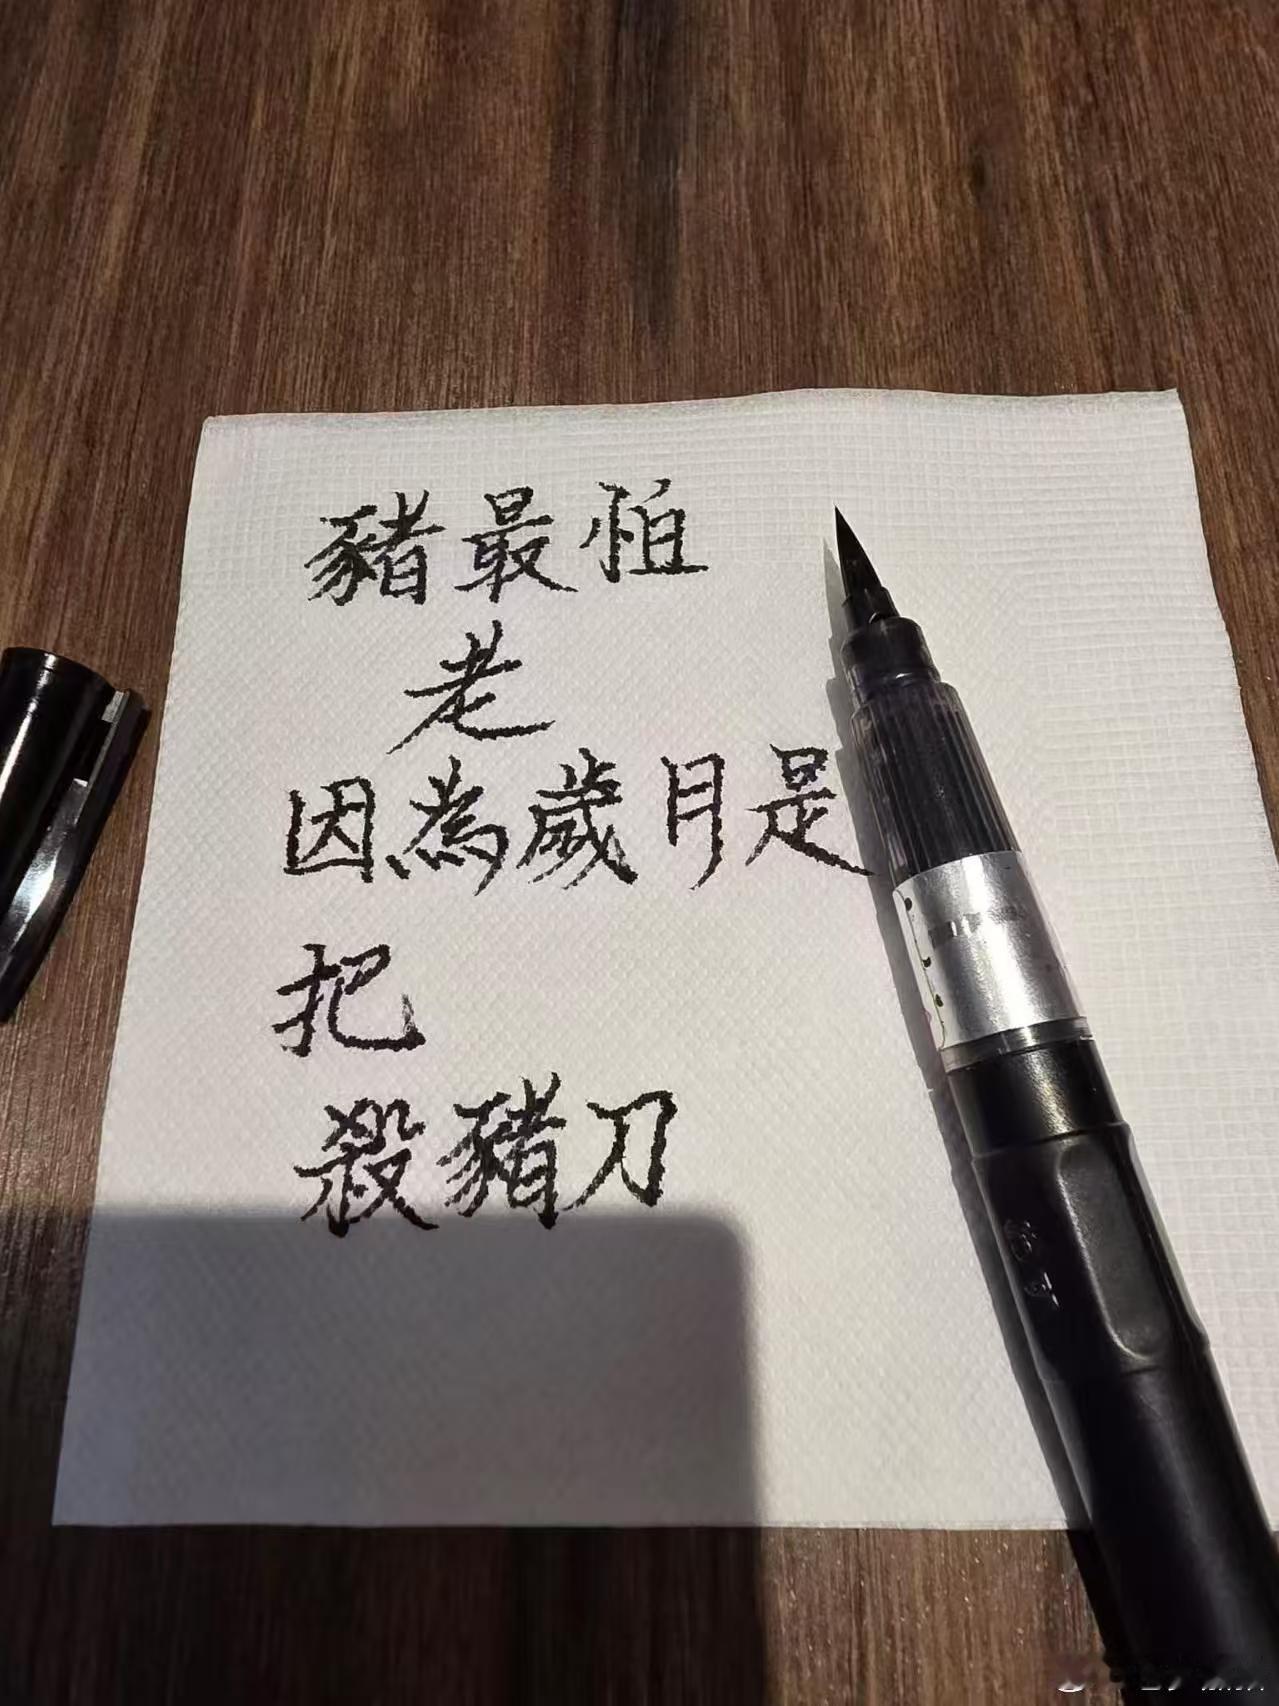 豬最怕
老
因為歲月是
把
殺豬刀